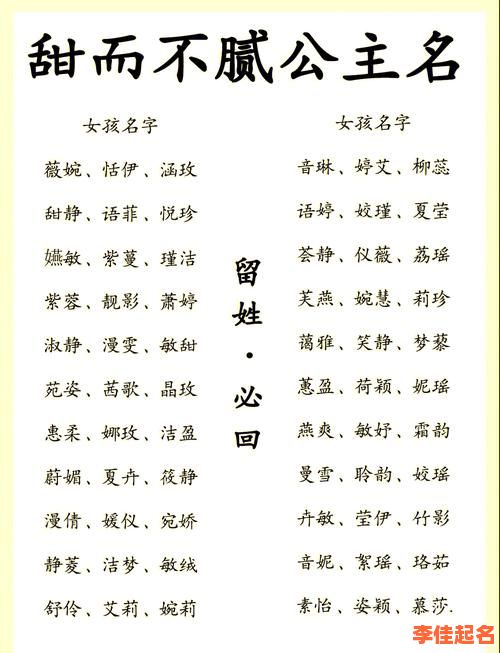 甜而不腻公主名
女孩名字
薇婉、恬伊、涵玫
甜静、语菲、悦珍
嬿敏、紫蔓、瑾洁
紫蓉、靓影、萧婷
淑静、漫雯、敏甜
苑姿、茜歌、晶玫
惠柔、娜玫、洁盈
蔚媚、夏卉、筱静
漫倩、媛仪、宛娇
静菱、洁梦、敏绒
舒伶、艾莉、婉莉
留姓·必回
女孩名字
音琳、婷艾、柳蕊
语婷、姣瑾、夏莹
荟静、仪薇、荔瑶
芙燕、婉慧、莉珍
蔼雅、笑静、梦藜
蕙盈、荷颖、妮瑶
燕爽、敏妤、霜韵
曼雪、聆韵、姣瑶
卉敏、莹伊、竹影
音妮、絮瑶、珞茹
素怡、姿颖、慕莎.
李佳起名